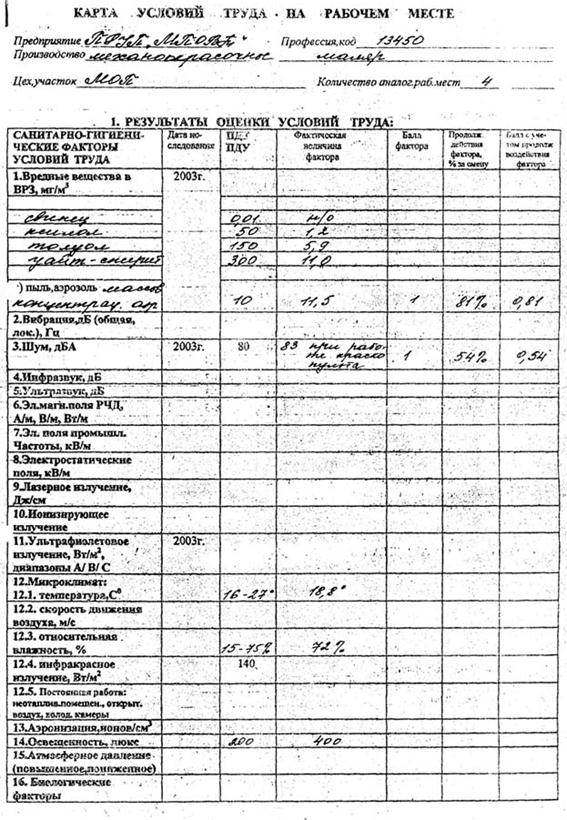 КАРТА УСЛОВИЙ ТРУДА НА РАБОЧЕМ МЕСТЕ
Предприятие Профессия, код 13450
Производство механосварочное маляр
Цех, участок МОП Количество аналог. раб. мест 4
1. РЕЗУЛЬТАТЫ ОЦЕНКИ УСЛОВИЙ ТРУДА:
САНИТАРНО-ГИГИЕНИ- Дата ис- ПДК Фактическая Балл Продолж. Балл с уче-
ЧЕСКИЕ ФАКТОРЫ следования ПДУ величина фактора действия том продолж
УСЛОВИЙ ТРУДА фактора фактора, воздействия
% за смену фактора
1.Вредные вещества в 2003г.
ВРЗ, мг/м³
свинец 0,01 н/о
ксилол 50 1,2
толуол 150 5,9
уайт-спирит 300 11,0
пыль, аэрозоль массов
концентрац. аэр 10 11,5 1 81% 0,81
2.Вибрация,дБ (общая,
лок.), Гц
3.Шум, дБА 2003г. 80 83 при рабо- 1 54% 0,54
те краско
пульта
4.Инфразвук, дБ
5.Ультразвук, дБ
6.Эл.магн.поля РЧД,
А/м, В/м, Вт/м
7.Эл. поля промышл.
Частоты, кВ/м
8.Электростатические
поля, кВ/м
9.Лазерное излучение,
Дж/см
10.Ионизирующее
излучение
11.Ультрафиолетовое 2003г.
излучение, Вт/м²,
диапазоны А/ В/ С
12.Микроклимат:
12.1. температура,С⁰ 16-27° 18,8°
12.2. скорость движения
воздуха, м/с
12.3. относительная
влажность, % 15-75% 72%
12.4. инфракрасное 140
излучение, Вт/м²
12.5. Постоянная работа:
неотаплив.помещен., открыт.
воздух, холод. камеры
13.Аэронизация,ионов/см³
14.Освещенность, люкс 200 400
15.Атмосферное давление
(повышенное,пониженное)
16. Биологические
факторы